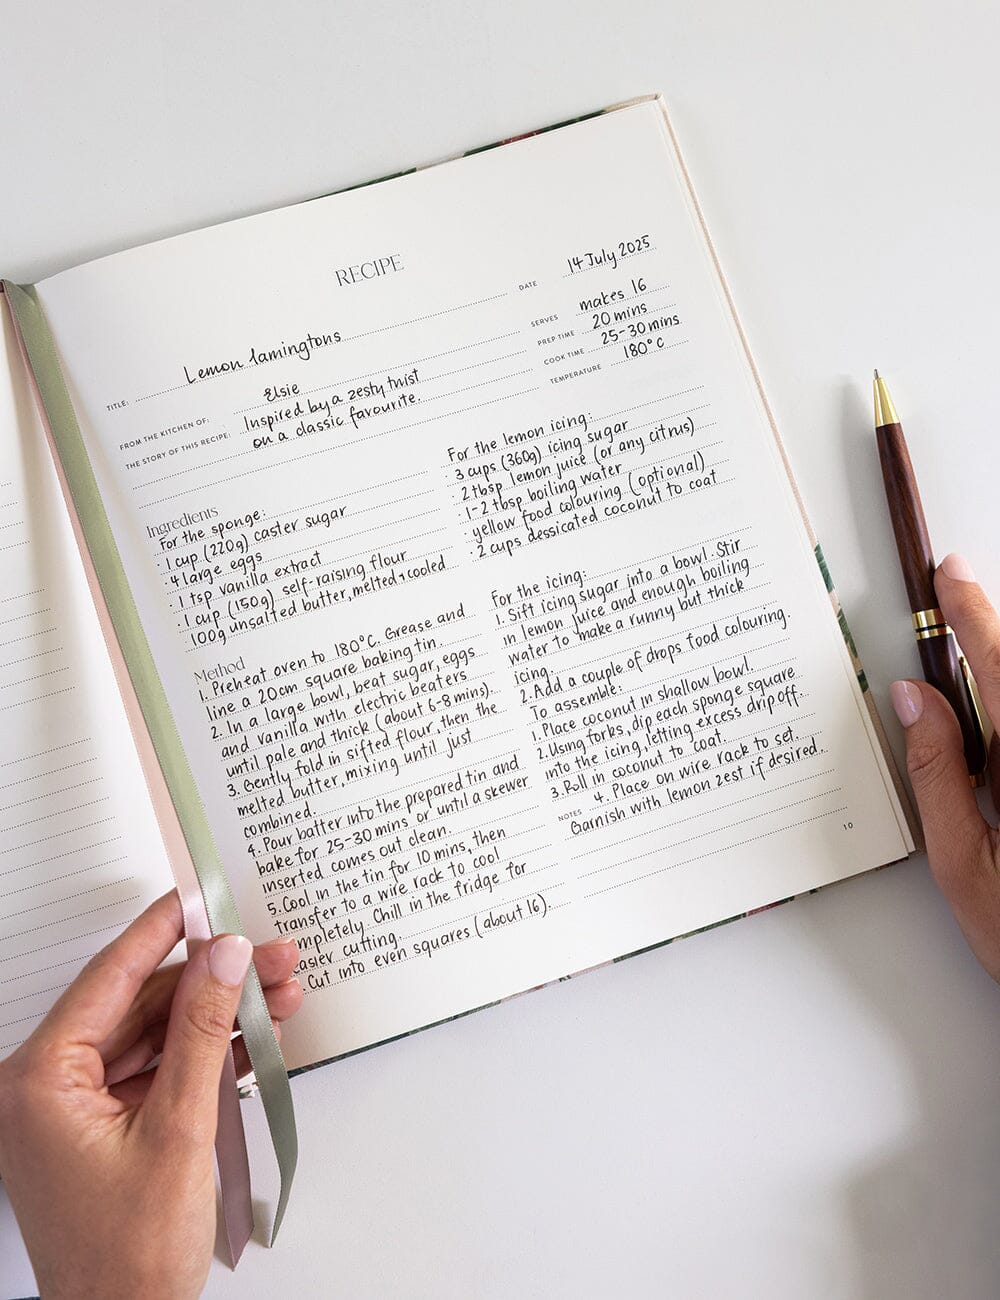 RECIPE
DATE 14 July 2025
TITLE: Lemon lamingtons
SERVES makes 16
FROM THE KITCHEN OF: Elsie
PREP TIME 20 mins
THE STORY OF THIS RECIPE: Inspired by a zesty twist
COOK TIME 25-30 mins
on a classic favourite.
TEMPERATURE 180°C
Ingredients
For the sponge:
· 1 cup (220g) caster sugar
· 4 large eggs
· 1 tsp vanilla extract
· 1 cup (150g) self-raising flour
100g unsalted butter, melted & cooled
For the lemon icing:
· 3 cups (360g) icing sugar
· 2 tbsp lemon juice (or any citrus)
· 1-2 tbsp boiling water
· yellow food colouring (optional)
· 2 cups dessicated coconut to coat
Method
1. Preheat oven to 180°C. Grease and
line a 20cm square baking tin.
2. In a large bowl, beat sugar, eggs
and vanilla with electric beaters
until pale and thick (about 6-8 mins).
3. Gently fold in sifted flour, then the
melted butter, mixing until just
combined.
4. Pour batter into the prepared tin and
bake for 25-30 mins or until a skewer
inserted comes out clean.
5. Cool in the tin for 10 mins, then
transfer to a wire rack to cool
mpletely. Chill in the fridge for
easier cutting.
. Cut into even squares (about 16).
For the icing:
1. Sift icing sugar into a bowl. Stir
in lemon juice and enough boiling
water to make a runny but thick
icing.
2. Add a couple of drops food colouring.
To assemble:
1. Place coconut in shallow bowl.
2. Using forks, dip each sponge square
into the icing, letting excess drip off.
3. Roll in coconut to coat.
4. Place on wire rack to set.
NOTES Garnish with lemon zest if desired.
10